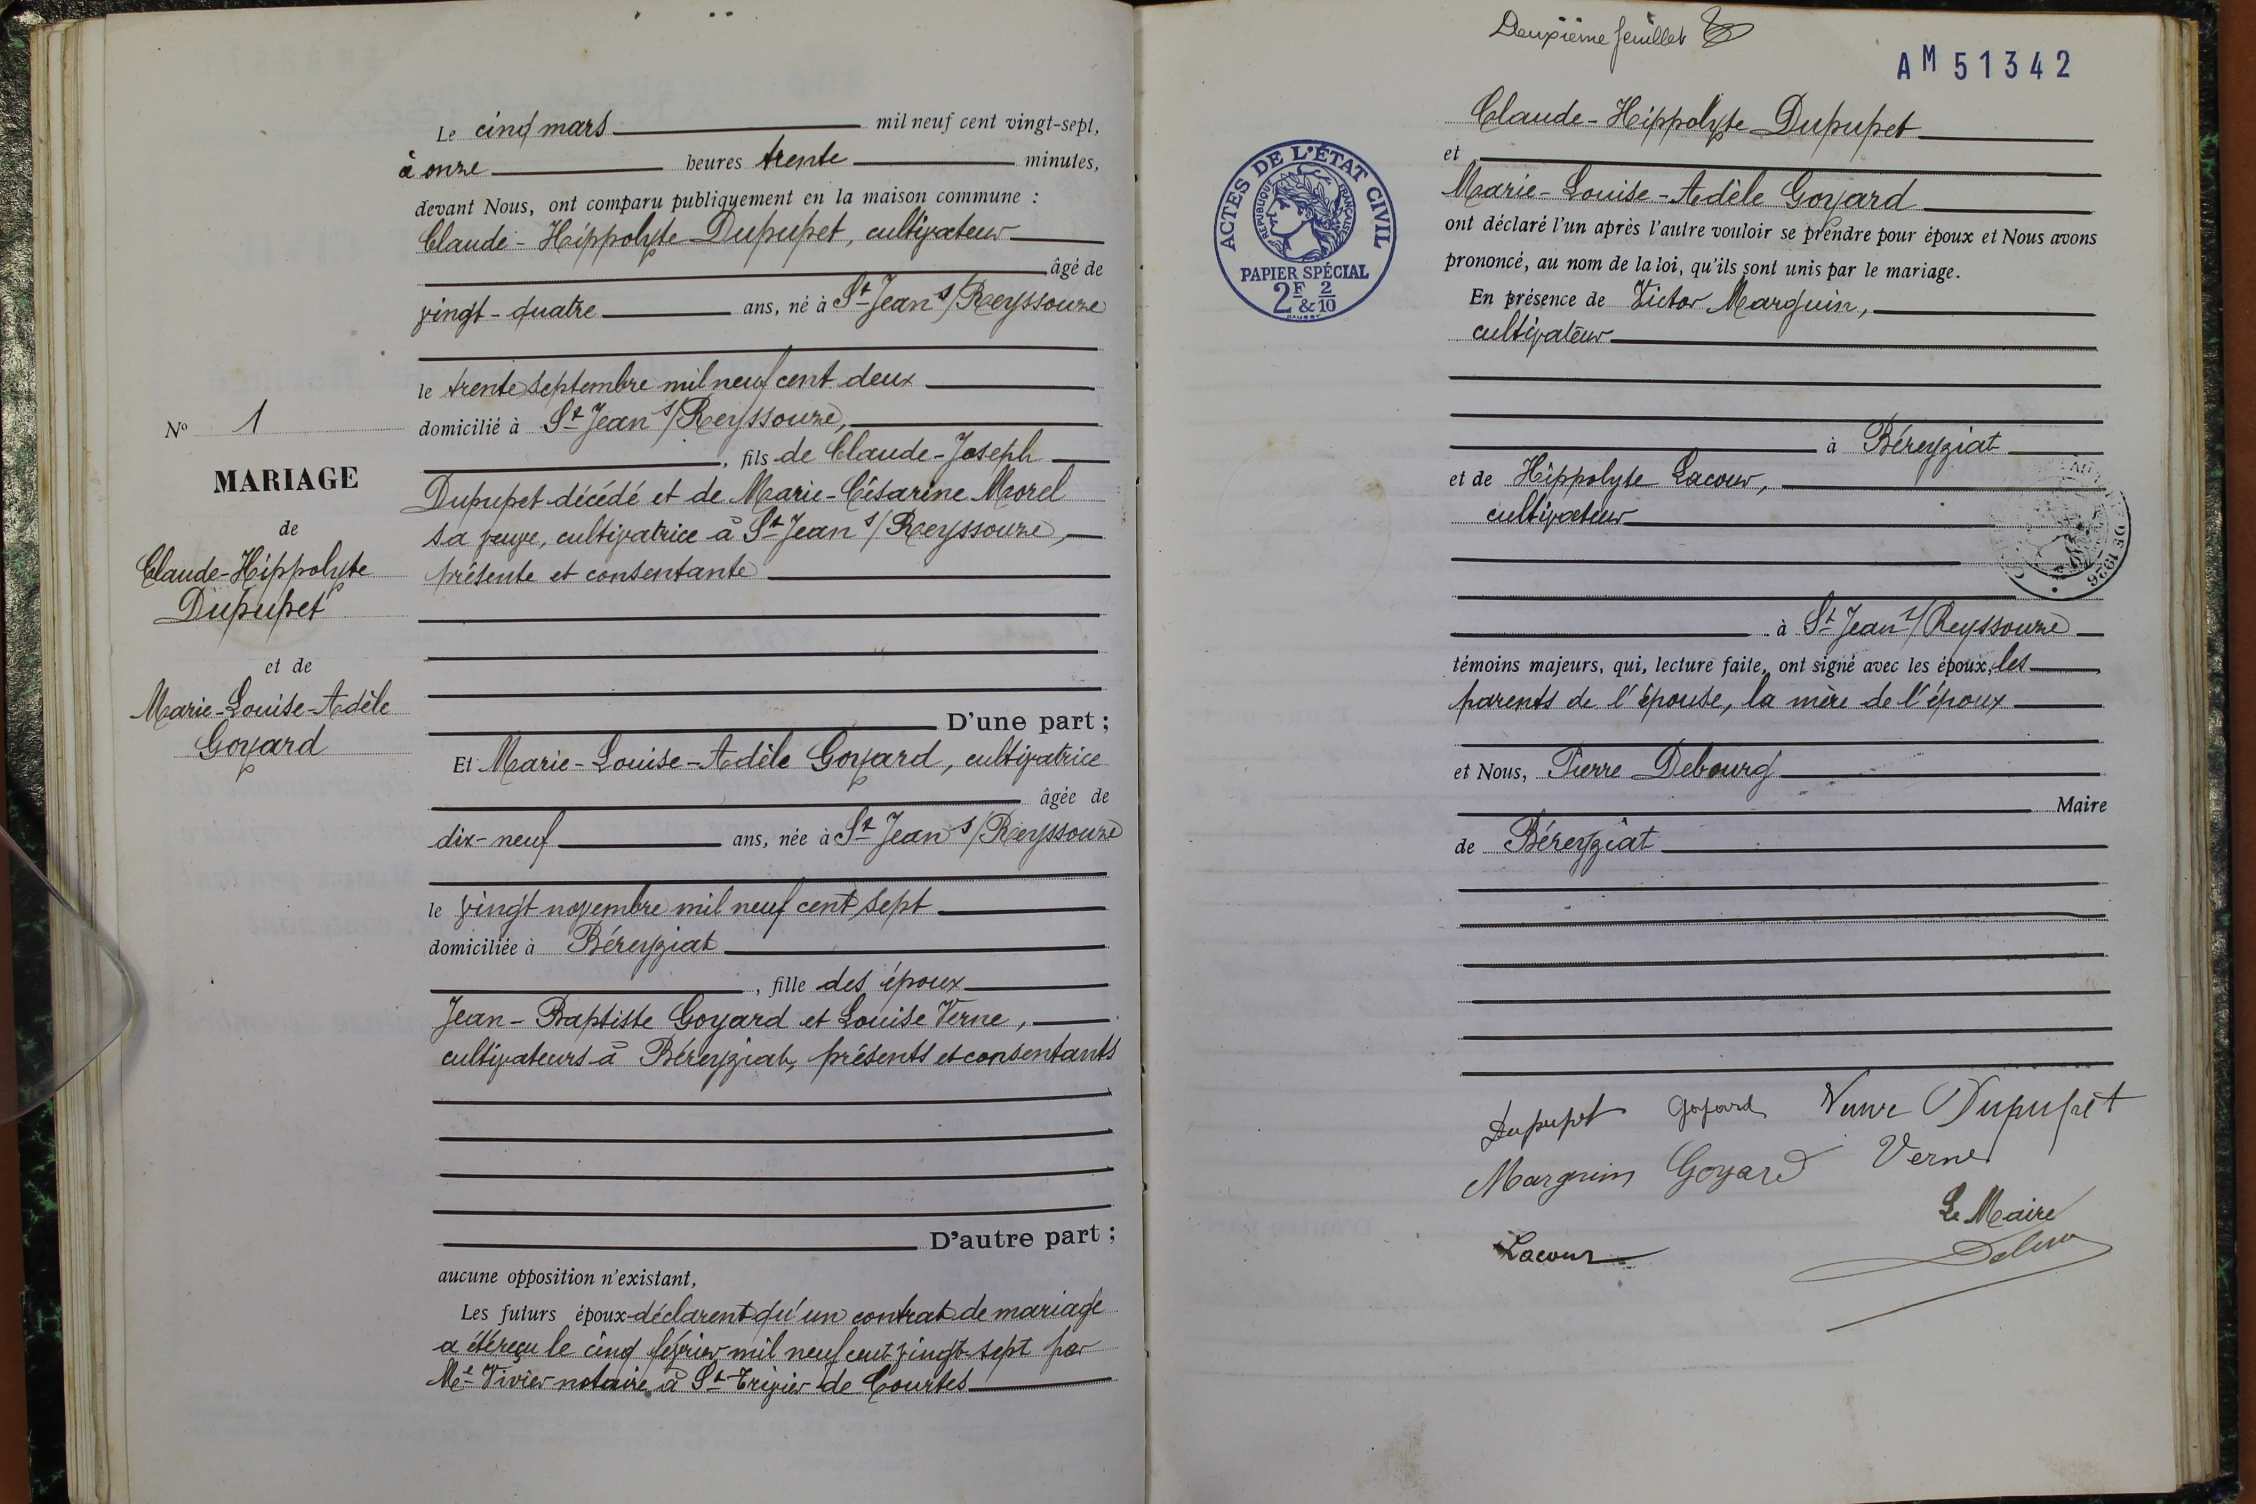 Le cinq mars mil neuf cent vingt-sept,
à onze heures trente minutes,
devant Nous, ont comparu publiquement en la maison commune :
Claude-Hippolyte Dupupet, cultivateur
âgé de
vingt-quatre ans, né à St Jean s/Reyssouze
le trente septembre mil neuf cent deux
domicilié à St Jean s/Reyssouze,
, fils de Claude-Joseph
Dupupet décédé et de Marie-Césarine Morel
sa veuve, cultivatrice à St Jean s/Reyssouze,
présente et consentante
D'une part ;
Et Marie-Louise-Adèle Goyard, cultivatrice
âgée de
dix-neuf ans, née à St Jean s/Reyssouze
le vingt novembre mil neuf cent sept
domiciliée à Béreyziat
, fille des époux
Jean-Baptiste Goyard et Louise Verne,
cultivateurs à Béreyziat, présents et consentants
D'autre part ;
aucune opposition n'existant,
Les futurs époux déclarent qu'un contrat de mariage
a été reçu le cinq février mil neuf cent vingt-sept par
Me Vivier notaire à St Trivier de Courtes
No 1
MARIAGE
de
Claude-Hippolyte
Dupupet
et de
Marie-Louise-Adèle
Goyard
Deuxième feuillet
AM 51342
ACTES DE L'ÉTAT CIVIL
RÉPUBLIQUE FRANÇAISE
PAPIER SPÉCIAL
2F & 2/10
Claude-Hippolyte Dupupet
et
Marie-Louise-Adèle Goyard
ont déclaré l'un après l'autre vouloir se prendre pour époux et Nous avons
prononcé, au nom de la loi, qu'ils sont unis par le mariage.
En présence de Victor Marguin,
cultivateur
à Béreyziat
et de Hippolyte Lacour,
cultivateur
DE 1926
à St Jean s/Reyssouze
témoins majeurs, qui, lecture faite, ont signé avec les époux, les
parents de l'épouse, la mère de l'époux
et Nous, Pierre Debourg
Maire
de Béreyziat
Dupupet Goyard Veuve Dupupet
Marguin Goyard Verne
Le Maire
Lacour